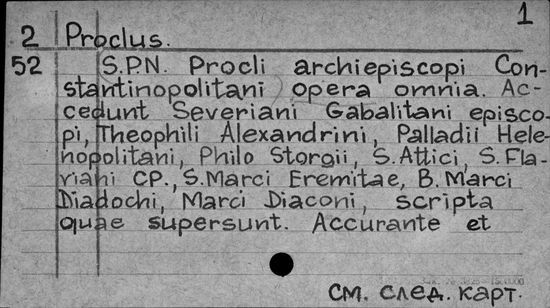 1
2 Proclus.
52 S.P.N. Procli archiepiscopi Con-
stantinopolitani opera omnia. Ac-
cedunt Severiani Gabalitani episco-
pi, Theophili Alexandrini, Palladii Hele-
nopolitani, Philo Storgii, S. Attici, S. Fla-
viani CP., S. Marci Eremitae, B. Marci
Diadochi, Marci Diaconi, scripta
quae supersunt. Accurante et
см. след. карт.